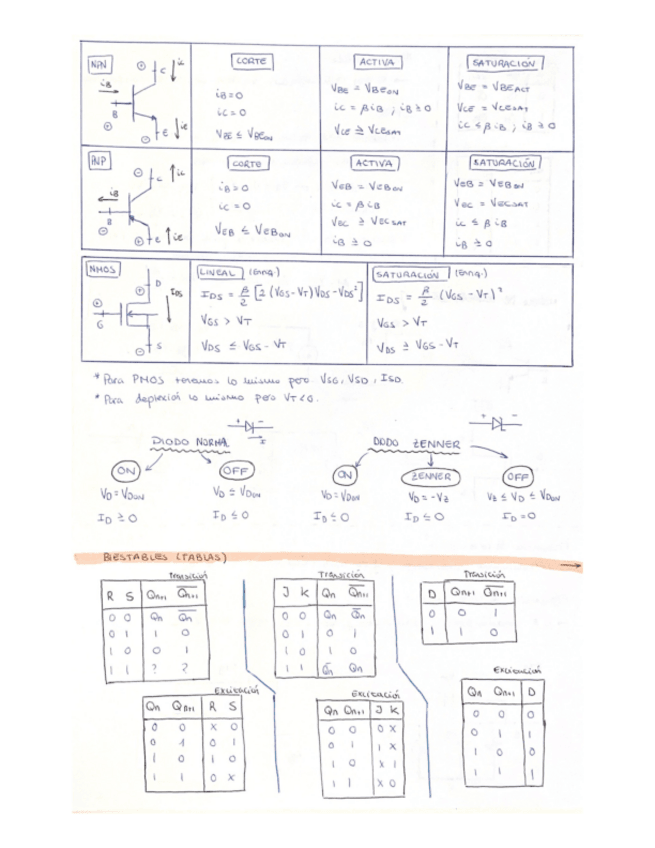 NPN
iB
B
C
ic
e
ie
CORTE
iB=0
ic=0
VBE ≤ VBEON
ACTIVA
VBE = VBEON
ic = βiB ; iB ≥ 0
VCE ≥ VCESAT
SATURACIÓN
VBE = VBEACT
VCE = VCESAT
ic ≤ βiB ; iB ≥ 0
PNP
iB
B
C
ic
e
ie
CORTE
iB=0
ic=0
VEB ≤ VEBON
ACTIVA
VEB = VEBON
ic = βiB
VEC ≥ VECSAT
iB ≥ 0
SATURACIÓN
VEB = VEBON
VEC = VECSAT
ic ≤ βiB
iB ≥ 0
NMOS
D
IDS
G
S
LINEAL (Enriq.)
IDS = β/2 [2(VGS-VT)VDS-VDS²]
VGS > VT
VDS ≤ VGS-VT
SATURACIÓN (Enriq.)
IDS = β/2 (VGS-VT)²
VGS > VT
VDS ≥ VGS-VT
* Para PMOS tenemos lo mismo pero VSG, VSD, ISD.
* Para deplexión lo mismo pero VT<0.
DIODO NORMAL
+ -
I
ON
OFF
VD=VDON
VD ≤ VDON
ID ≥ 0
ID ≤ 0
DIODO ZENNER
+ -
ON
ZENNER
OFF
VD=VDON
VD=-VZ
VZ ≤ VD ≤ VDON
ID ≤ 0
ID ≤ 0
ID=0
BIESTABLES (TABLAS)
Transición
R S Qn+1 Q̅n+1
0 0 Qn Q̅n
0 1 1 0
1 0 0 1
1 1 ? ?
Excitación
Qn Qn+1 R S
0 0 X 0
0 1 0 1
1 0 1 0
1 1 0 X
Transición
J K Qn Q̅n+1
0 0 Qn Q̅n
0 1 0 1
1 0 1 0
1 1 Q̅n Qn
Excitación
Qn Qn+1 J K
0 0 0 X
0 1 1 X
1 0 X 1
1 1 X 0
Transición
D Qn+1 Q̅n+1
0 0 1
1 1 0
Excitación
Qn Qn+1 D
0 0 0
0 1 1
1 0 0
1 1 1